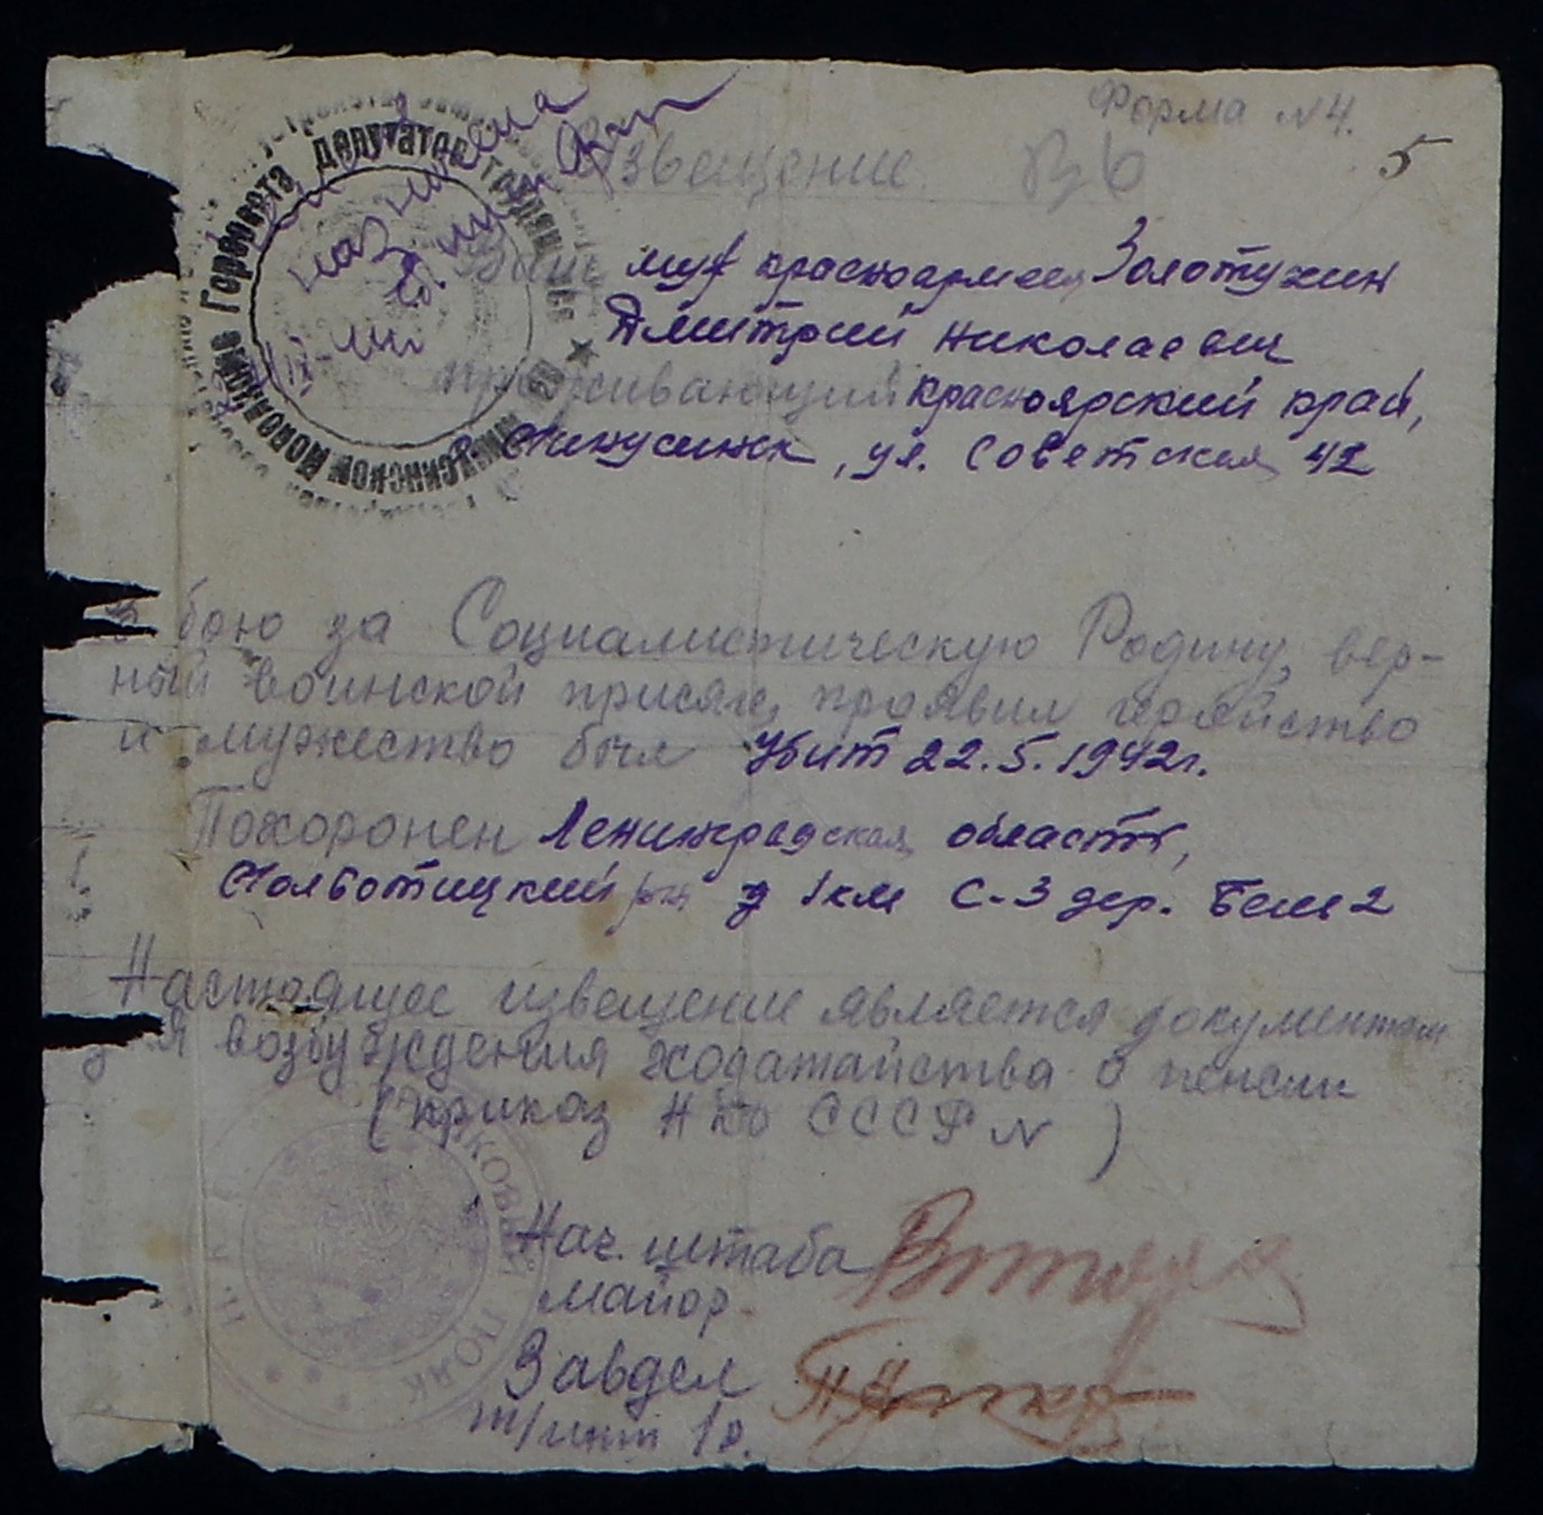 Форма N 4.
5
Извещение
Ваш муж красноармеец Золотухин
Дмитрий Николаевич
проживающий Красноярский край,
г. Минусинск, ул. Советская 42
В бою за Социалистическую Родину, вер-
ный воинской присяге, проявил геройство
и мужество был убит 22.5.1942г.
Похоронен Ленинградская область,
Молвотицкий р-н 1 км С-З дер.
Настоящее извещение является документом
для возбуждения ходатайства о пенсии
(приказ НКО СССР N )
Нач. штаба
майор
Завдел
т/инт 1 р.
Горсовета депутатов трудящ
Минусинской
КОВЫЙ ПОЛК